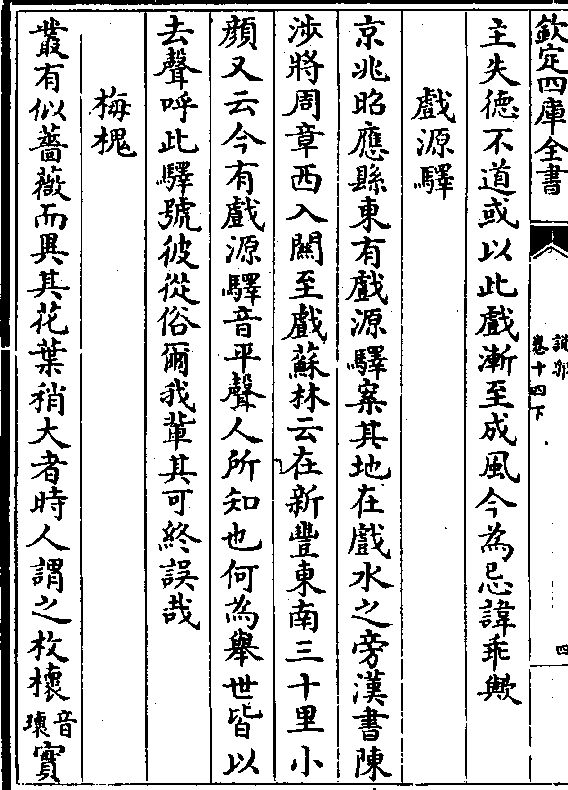 欽定四庫全書
說郛
卷十四下
四
主失德不道或以此戲漸至成風今為忌諱乖歟
戲源驛
京兆昭應縣東有戲源驛案其地在戲水之旁漢書陳
涉將周章西入關至戲蘇林云在新豐東南三十里小
顔又云今有戲源驛音平聲人所知也何為舉世皆以
去聲呼此驛號彼從俗爾我軰其可終誤哉
梅槐
叢有似薔薇而異其花葉稍大者時人謂之枚櫰音瓌實